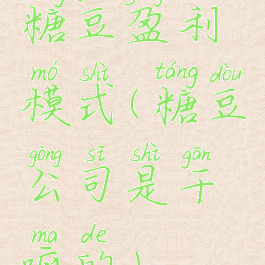 糖豆盈利
mó shì táng dòu
模式(糖豆
gōng sī shì gān
公司是干
ma de
嘛的)